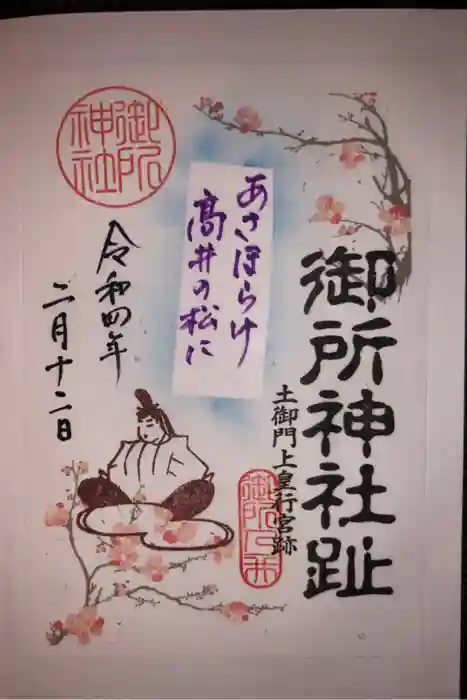 御所神社趾
土御門上皇行宮跡
あさほらけ
高井の松に
令和四年
二月十二日
御所
神社